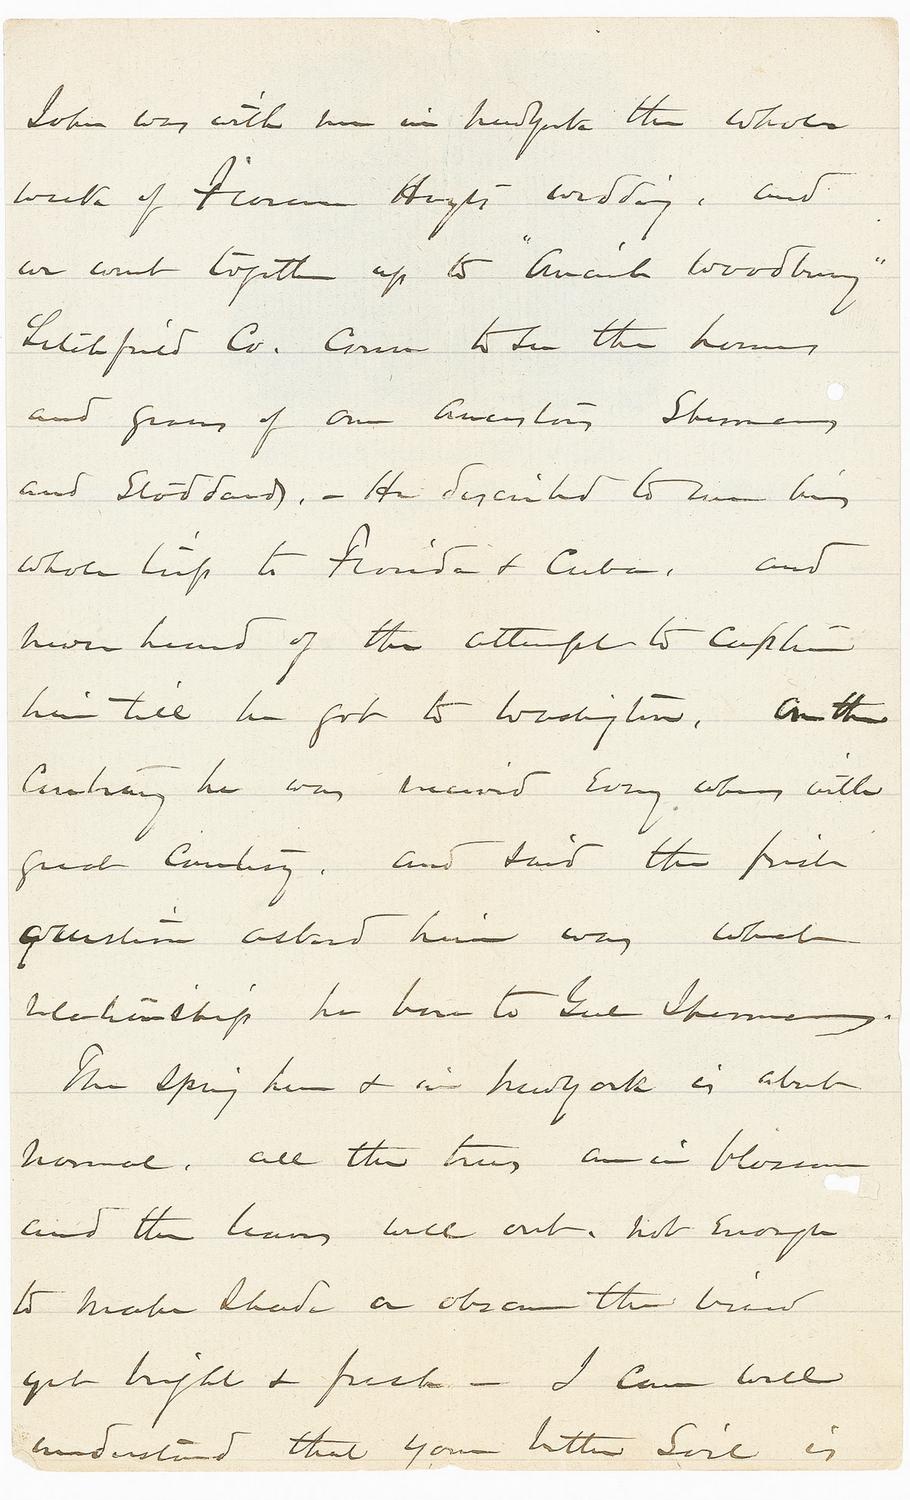 John was with me in New York the whole
week of Florence Hoyts wedding, and
we went together up to "Ancient Woodbury"
Litchfield Co. Conn to see the homes
and graves of our Ancestors Shermans
and Stoddards. - He described to me his
whole trip to Florida & Cuba, and
never heard of the attempt to Capture
him till he got to Washington, On the
Contrary he was received Every where with
great Courtesy, and said the first
question asked him was what
relationship he bore to Genl Sherman.
The Spring here & in New York is about
normal, all the trees are in blossom
and the leaves well out, not Enough
to make Shade or obscure the view
yet bright & fresh - I can well
understand that your better Soil is